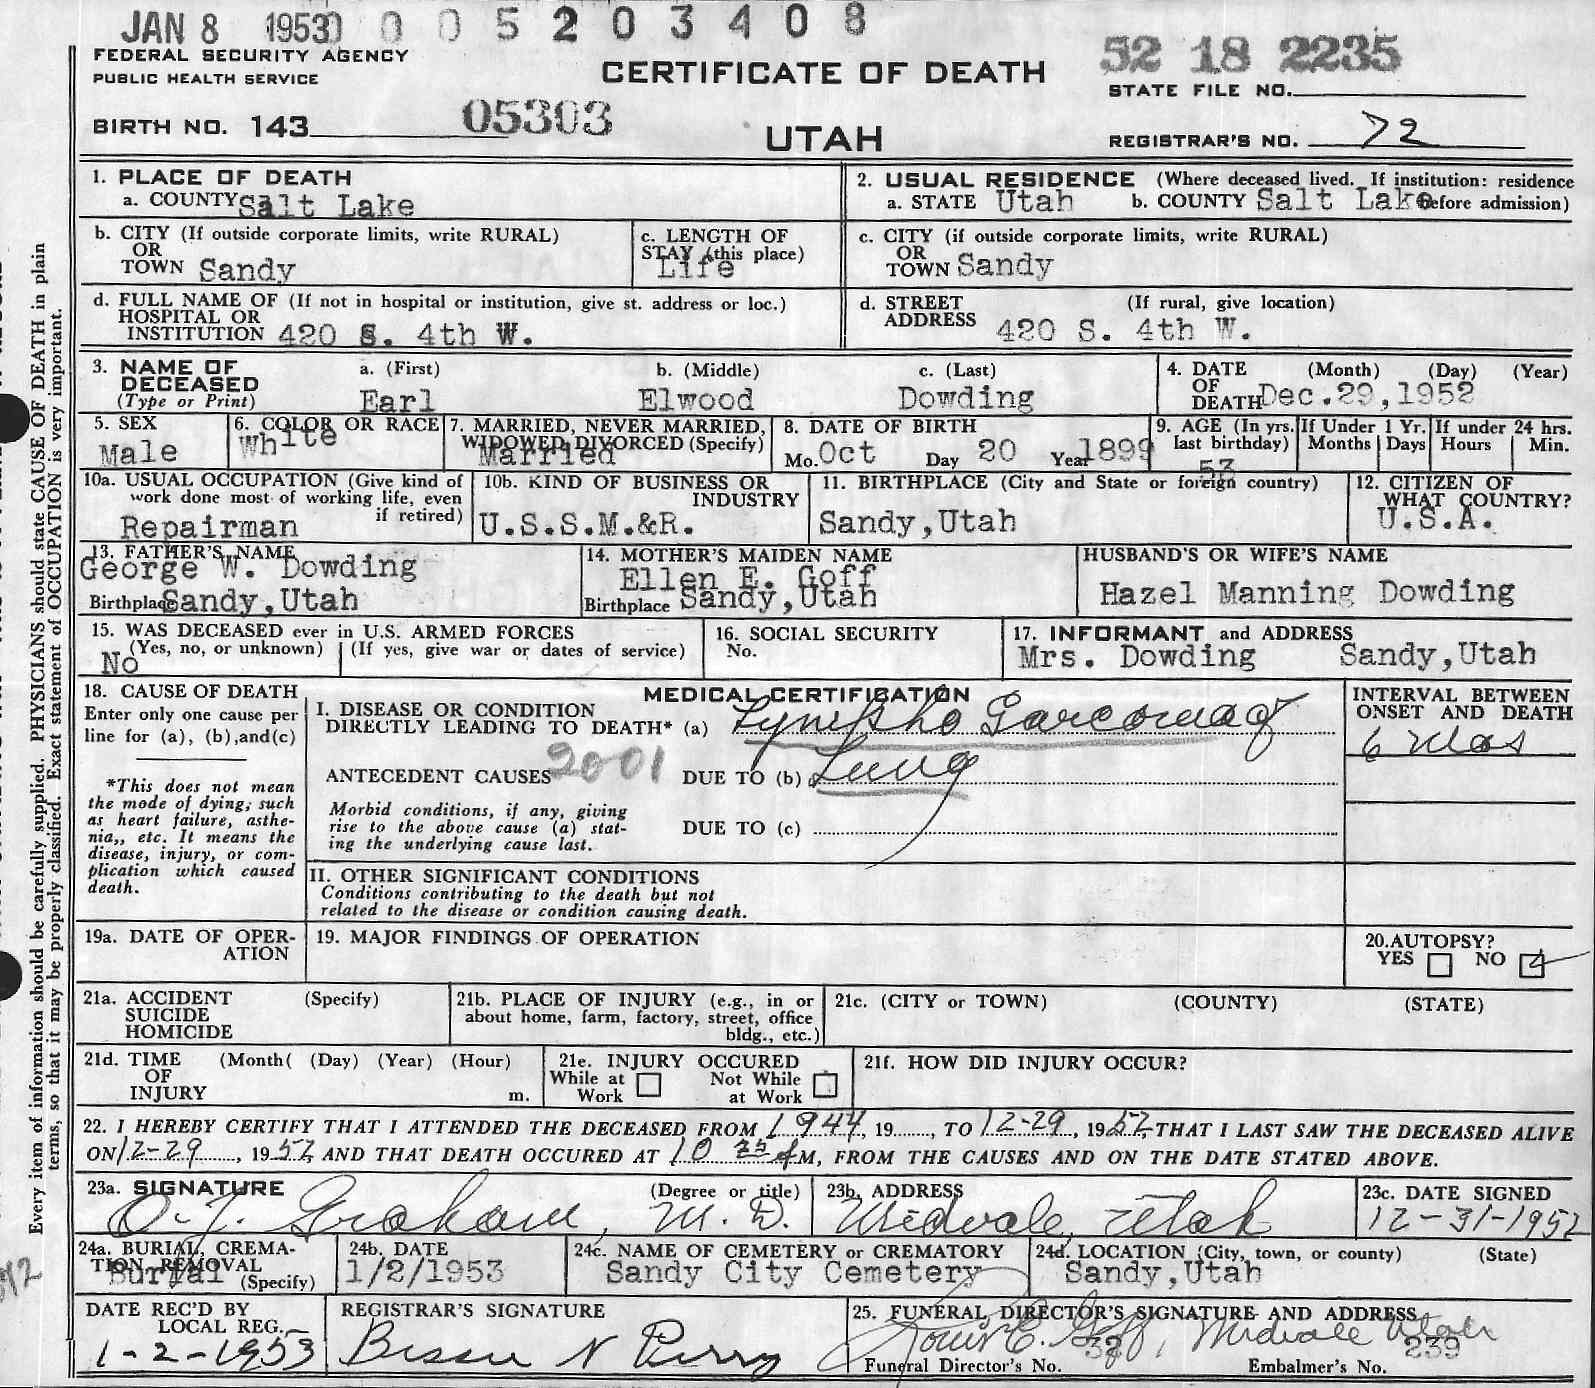 JAN 8 1953 0 0 5 2 0 3 4 0 8
FEDERAL SECURITY AGENCY
PUBLIC HEALTH SERVICE
CERTIFICATE OF DEATH
52 18 2235
STATE FILE NO.
BIRTH NO. 143 05303
UTAH
REGISTRAR'S NO. 72
1. PLACE OF DEATH
a. COUNTY Salt Lake
2. USUAL RESIDENCE (Where deceased lived. If institution: residence before admission)
a. STATE Utah b. COUNTY Salt Lake
b. CITY (If outside corporate limits, write RURAL)
OR
TOWN Sandy
c. LENGTH OF
STAY (this place)
Life
c. CITY (if outside corporate limits, write RURAL)
OR
TOWN Sandy
d. FULL NAME OF (If not in hospital or institution, give st. address or loc.)
HOSPITAL OR
INSTITUTION 420 S. 4th W.
d. STREET (If rural, give location)
ADDRESS 420 S. 4th W.
3. NAME OF
DECEASED
(Type or Print)
a. (First) b. (Middle) c. (Last)
Earl Elwood Dowding
4. DATE (Month) (Day) (Year)
OF
DEATH Dec.29,1952
5. SEX
Male
6. COLOR OR RACE
White
7. MARRIED, NEVER MARRIED,
WIDOWED, DIVORCED (Specify)
Married
8. DATE OF BIRTH
Mo. Oct Day 20 Year 1899
9. AGE (In yrs.
last birthday)
53
If Under 1 Yr.
Months Days
If under 24 hrs.
Hours Min.
10a. USUAL OCCUPATION (Give kind of
work done most of working life, even
if retired)
Repairman
10b. KIND OF BUSINESS OR
INDUSTRY
U.S.S.M.&R.
11. BIRTHPLACE (City and State or foreign country)
Sandy,Utah
12. CITIZEN OF
WHAT COUNTRY?
U.S.A.
13. FATHER'S NAME
George W. Dowding
Birthplace Sandy,Utah
14. MOTHER'S MAIDEN NAME
Ellen E. Goff
Birthplace Sandy,Utah
HUSBAND'S OR WIFE'S NAME
Hazel Manning Dowding
15. WAS DECEASED ever in U.S. ARMED FORCES
(Yes, no, or unknown) (If yes, give war or dates of service)
No
16. SOCIAL SECURITY
No.
17. INFORMANT and ADDRESS
Mrs. Dowding Sandy,Utah
18. CAUSE OF DEATH
Enter only one cause per
line for (a), (b),and(c)
*This does not mean
the mode of dying, such
as heart failure, asthe-
nia,, etc. It means the
disease, injury, or com-
plication which caused
death.
MEDICAL CERTIFICATION
I. DISEASE OR CONDITION
DIRECTLY LEADING TO DEATH* (a) Lympho Sarcoma of
ANTECEDENT CAUSES 2001 DUE TO (b) Lung
Morbid conditions, if any, giving
rise to the above cause (a) stat-
ing the underlying cause last.
DUE TO (c)
INTERVAL BETWEEN
ONSET AND DEATH
6 Mos
II. OTHER SIGNIFICANT CONDITIONS
Conditions contributing to the death but not
related to the disease or condition causing death.
19a. DATE OF OPER-
ATION
19. MAJOR FINDINGS OF OPERATION
20.AUTOPSY?
YES NO
21a. ACCIDENT (Specify)
SUICIDE
HOMICIDE
21b. PLACE OF INJURY (e.g., in or
about home, farm, factory, street, office
bldg., etc.)
21c. (CITY or TOWN) (COUNTY) (STATE)
21d. TIME (Month( (Day) (Year) (Hour)
OF
INJURY m.
21e. INJURY OCCURED
While at Work Not While at Work
21f. HOW DID INJURY OCCUR?
22. I HEREBY CERTIFY THAT I ATTENDED THE DECEASED FROM 1944, 19, TO 12-29, 1952, THAT I LAST SAW THE DECEASED ALIVE
ON 12-29, 1952, AND THAT DEATH OCCURED AT 10 M, FROM THE CAUSES AND ON THE DATE STATED ABOVE.
23a. SIGNATURE (Degree or title)
O. J. Graham, M. D.
23b. ADDRESS
Midvale, Utah
23c. DATE SIGNED
12-31-1952
24a. BURIAL, CREMA-
TION, REMOVAL
Burial (Specify)
24b. DATE
1/2/1953
24c. NAME OF CEMETERY or CREMATORY
Sandy City Cemetery
24d. LOCATION (City, town, or county) (State)
Sandy,Utah
DATE REC'D BY
LOCAL REG.
1-2-1953
REGISTRAR'S SIGNATURE
Perry
25. FUNERAL DIRECTOR'S SIGNATURE AND ADDRESS
Goff, Midvale Utah
Funeral Director's No. 32 Embalmer's No. 239
Every item of information should be carefully supplied. PHYSICIANS should state CAUSE OF DEATH in plain
terms, so that it may be properly classified. Exact statement of OCCUPATION is very important.